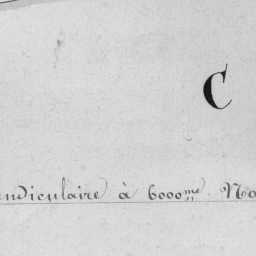 C
endiculaire à 6000me No